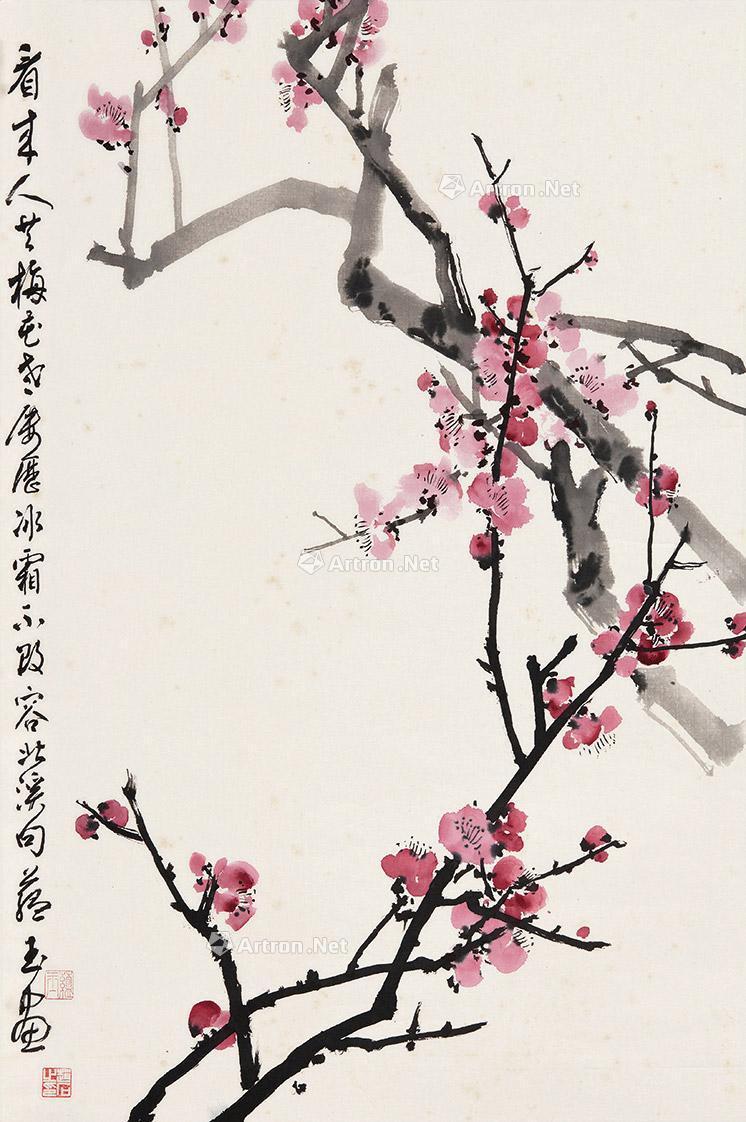 看來人共梅花老屢歷冰霜不改容北溪句蘊玉畫
Artron.Net
Artron.Net
Artron.Net